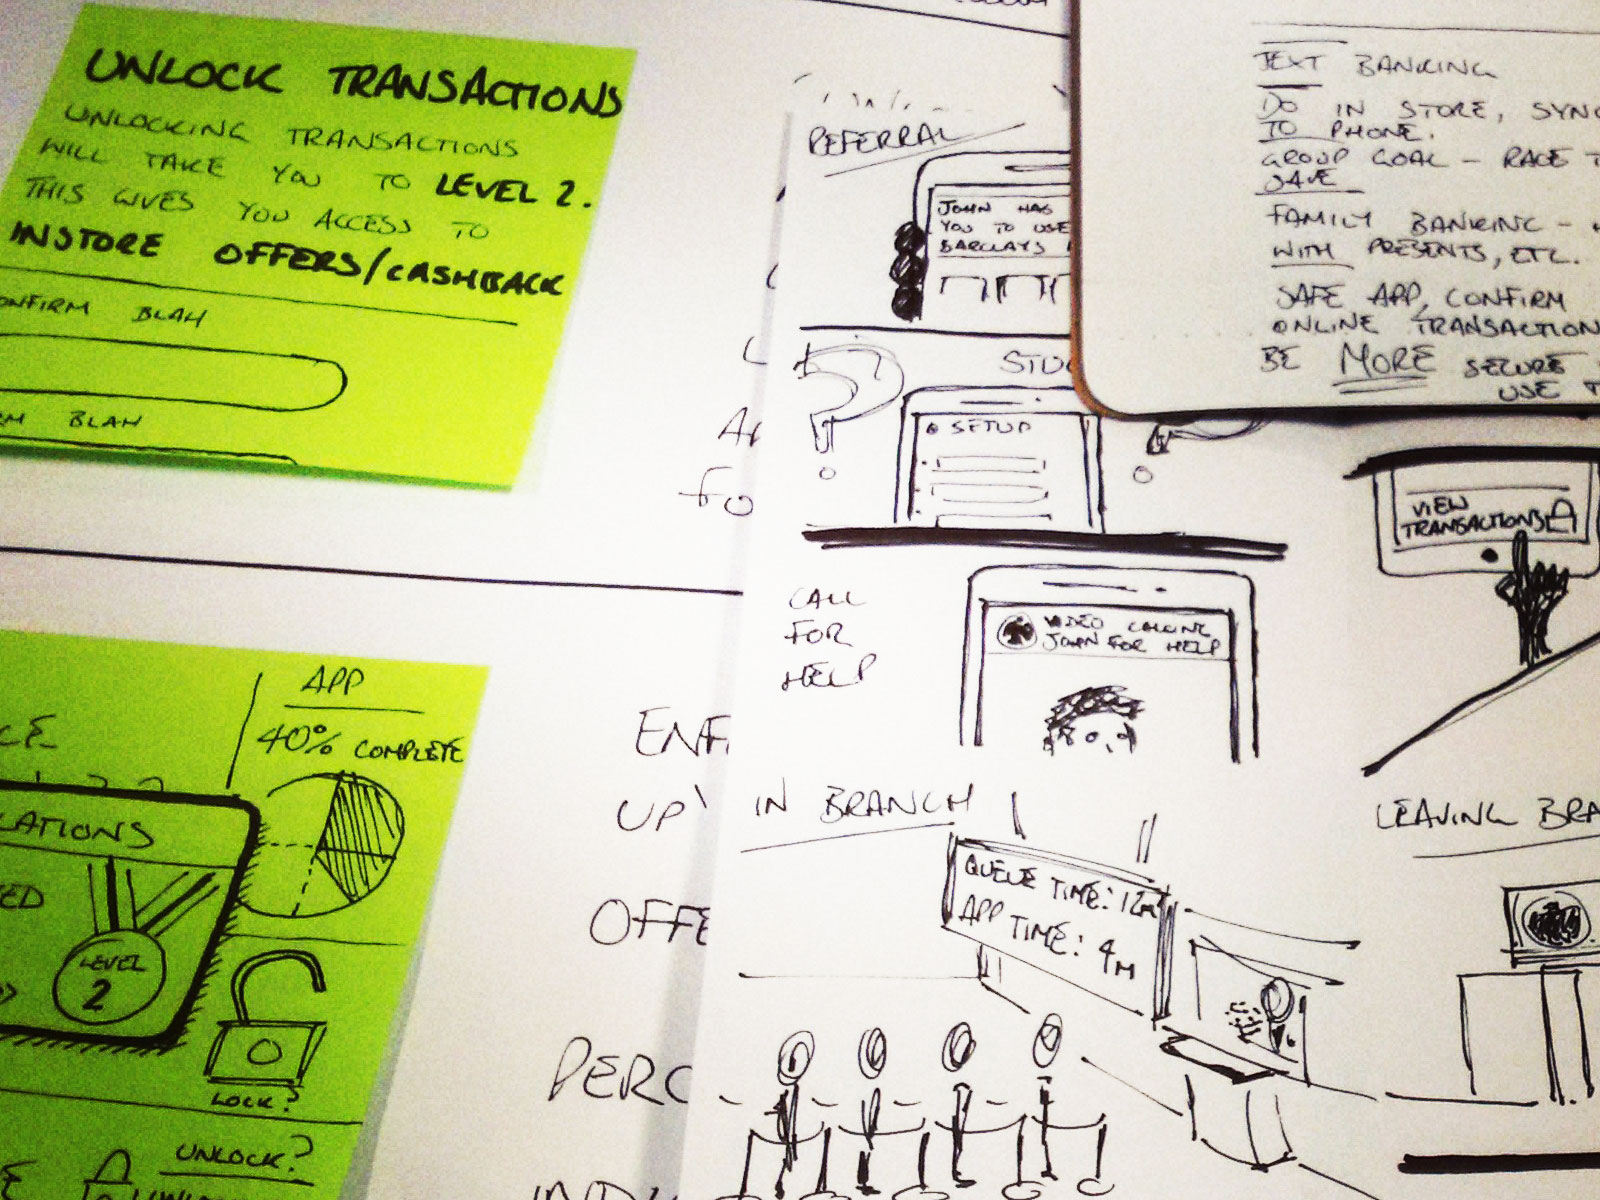 UNLOCK TRANSACTIONS
UNLOCKING TRANSACTIONS
WILL TAKE YOU TO LEVEL 2.
THIS GIVES YOU ACCESS TO
INSTORE OFFERS/CASHBACK
CONFIRM BLAH
BLAH
APP
40% COMPLETE
LATIONS
LEVEL
2
LOCK?
UNLOCK?
FO
ENF
UP'
OFFE
PERC
REFERRAL
JOHN HAS
YOU TO USE
BARCLAYS
STU
SETUP
CALL
FOR
HELP
VIDEO CALLING
JOHN FOR HELP
IN BRANCH
QUEUE TIME: 12M
APP TIME: 4M
TEXT BANKING
DO IN STORE, SYNC
TO PHONE.
GROUP GOAL - RACE T
SAVE
FAMILY BANKING -
WITH PRESENTS, ETC.
SAFE APP, CONFIRM
ONLINE TRANSACTION
BE MORE SECURE
USE T
VIEW
TRANSACTIONS
LEAVING BRA